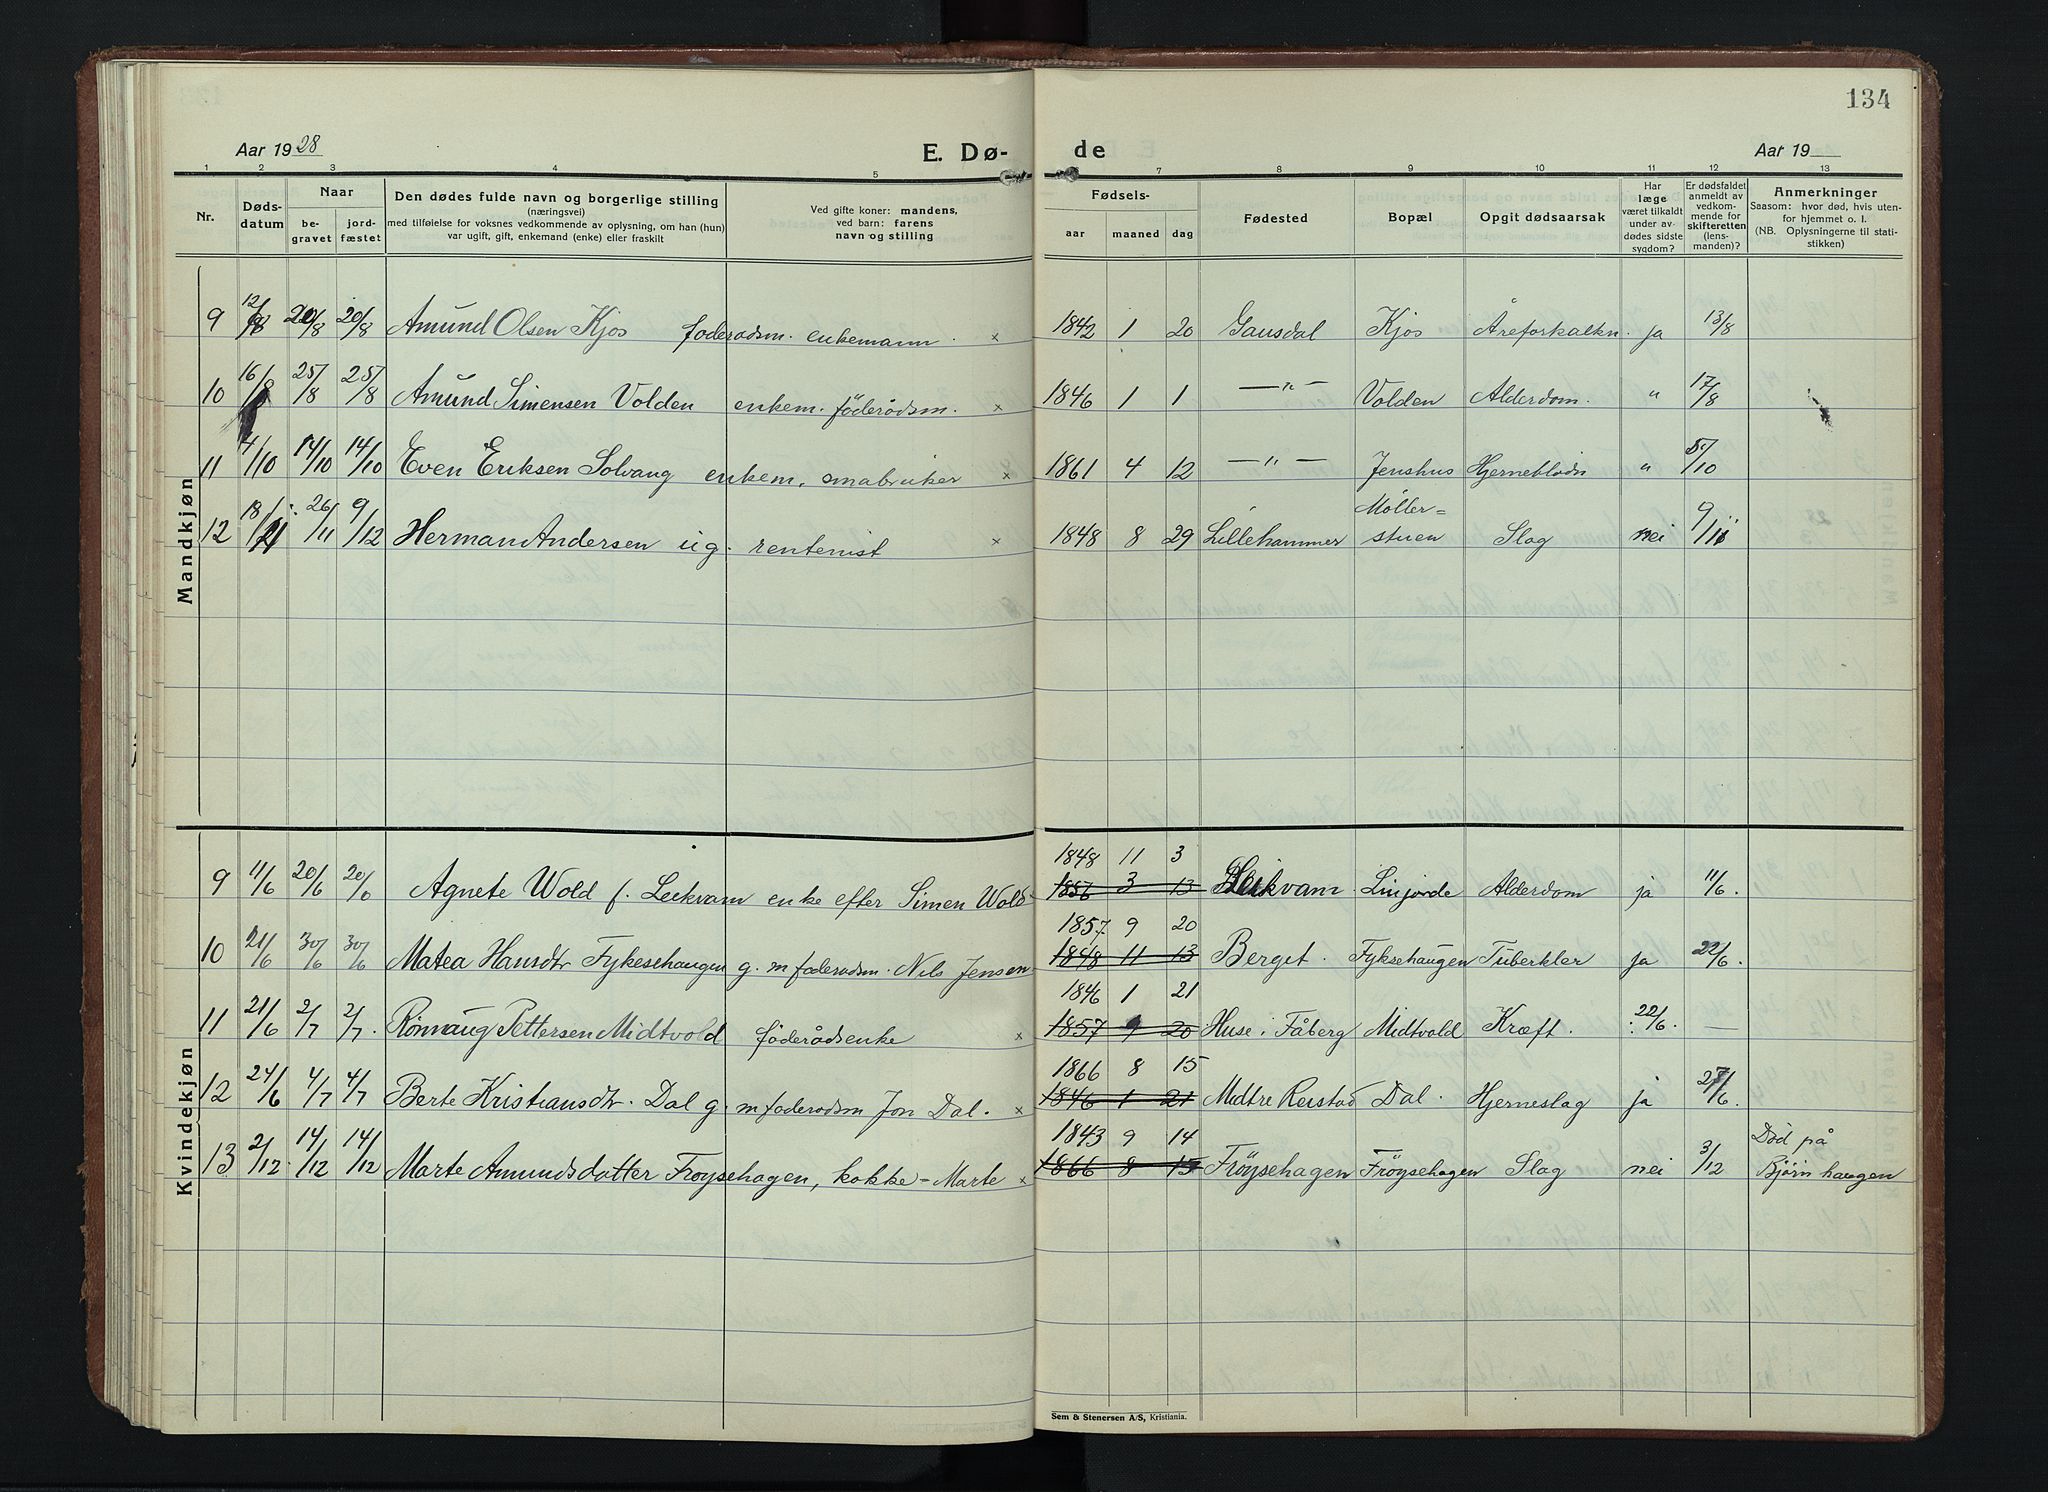 134
Aar 1928
E. Dø-
de
Aar 19
1 2 3 4 5 7 8 9 10 11 12 13
Nr.
Døds-
datum
Naar
be-
gravet
jord-
fæstet
Den dødes fulde navn og borgerlige stilling
(næringsvei)
med tilføielse for voksnes vedkommende av oplysning, om han (hun)
var ugift, gift, enkemand (enke) eller fraskilt
Ved gifte koner: mandens,
ved barn: farens
navn og stilling
Fødsels-
aar maaned dag
Fødested
Bopæl
Opgit dødsaarsak
Har
læge
været tilkaldt
under av-
dødes sidste
sygdom?
Er dødsfaldet
anmeldt av
vedkom-
mende for
skifteretten
(lens-
manden)?
Anmerkninger
Saasom: hvor død, hvis uten-
for hjemmet o. l.
(NB. Oplysningerne til stati-
stikken)
Mandkjøn
9 12/8 20/8 20/8 Amund Olsen Kjos föderådsm. enkemann. x 1842 1 20 Gausdal Kjos Åreforkalkn. ja 13/8
10 16/8 25/8 25/8 Amund Simensen Volden enkem. föderådsm. x 1846 1 1 —"— Volden Alderdom. " 17/8
11 4/10 14/10 14/10 Even Eriksen Solvang enkem. småbruker x 1861 4 12 —"— Jenshus Hjerneblödn " 5/10
Möller=
12 18/11 26/11 9/12 Herman Andersen ug. rentenist x 1848 8 29 Lillehammer stuen Slag nei 9/11
Kvindekjøn
1848 11 3
9 11/6 20/6 20/6 Agnete Wold f. Leikvam enke efter Simen Wold 1856 3 13 Leikvam Linjorde Alderdom ja 11/6.
1857 9 20
10 21/6 30/6 30/6 Matea Hansdtr Fykesehaugen g. m föderådsm. Nils Jensen 1848 11 13 Berget. Fyksehaugen Tuberkler ja 22/6.
1846 1 21
11 21/6 2/7 2/7. Rönnaug Pettersen Midtvold föderådsenke x 1857 9 20 Huse i Fåberg Midtvold Kræft. 22/6. —
1866 8 15
12 24/6 4/7 4/7 Berte Kristiansdtr. Dal g. m föderådsm Jon Dal. x 1846 1 21 Midtre Reistad Dal. Hjerneslag ja 27/6.
1843 9 14 Död på
13 2/12. 14/12 14/12 Marte Amundsdatter Fröysehagen, kokke-Marte x 1866 8 15 Fröysehagen Fröysehagen Slag nei 3/12 Bjørnhaugen
Sem & Stenersen A/S, Kristiania.